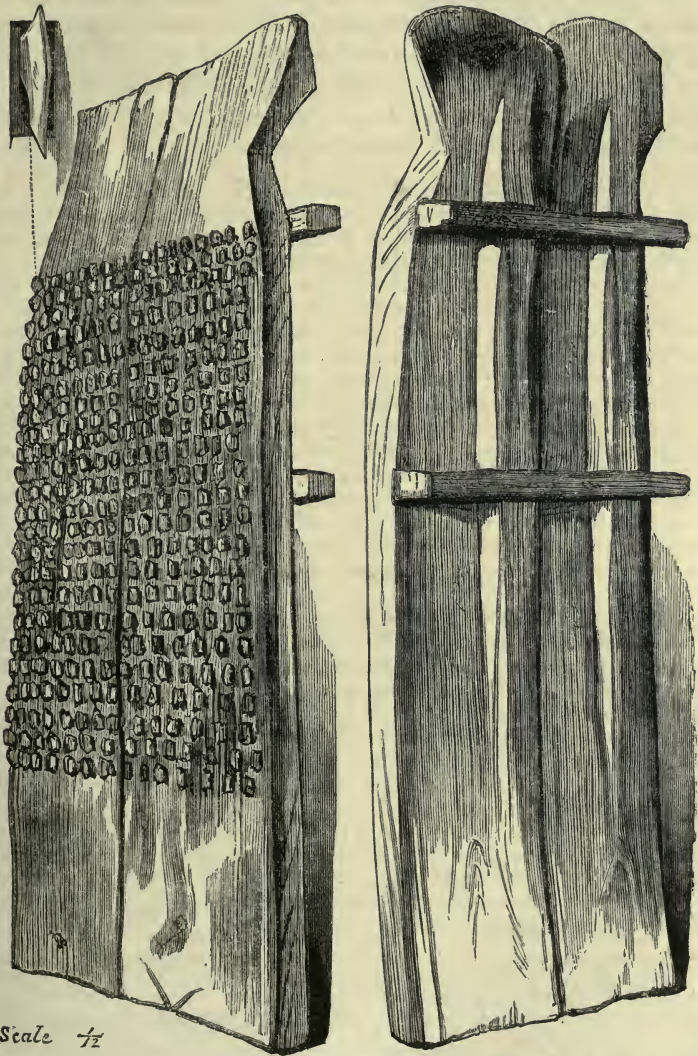 Scale 1/12